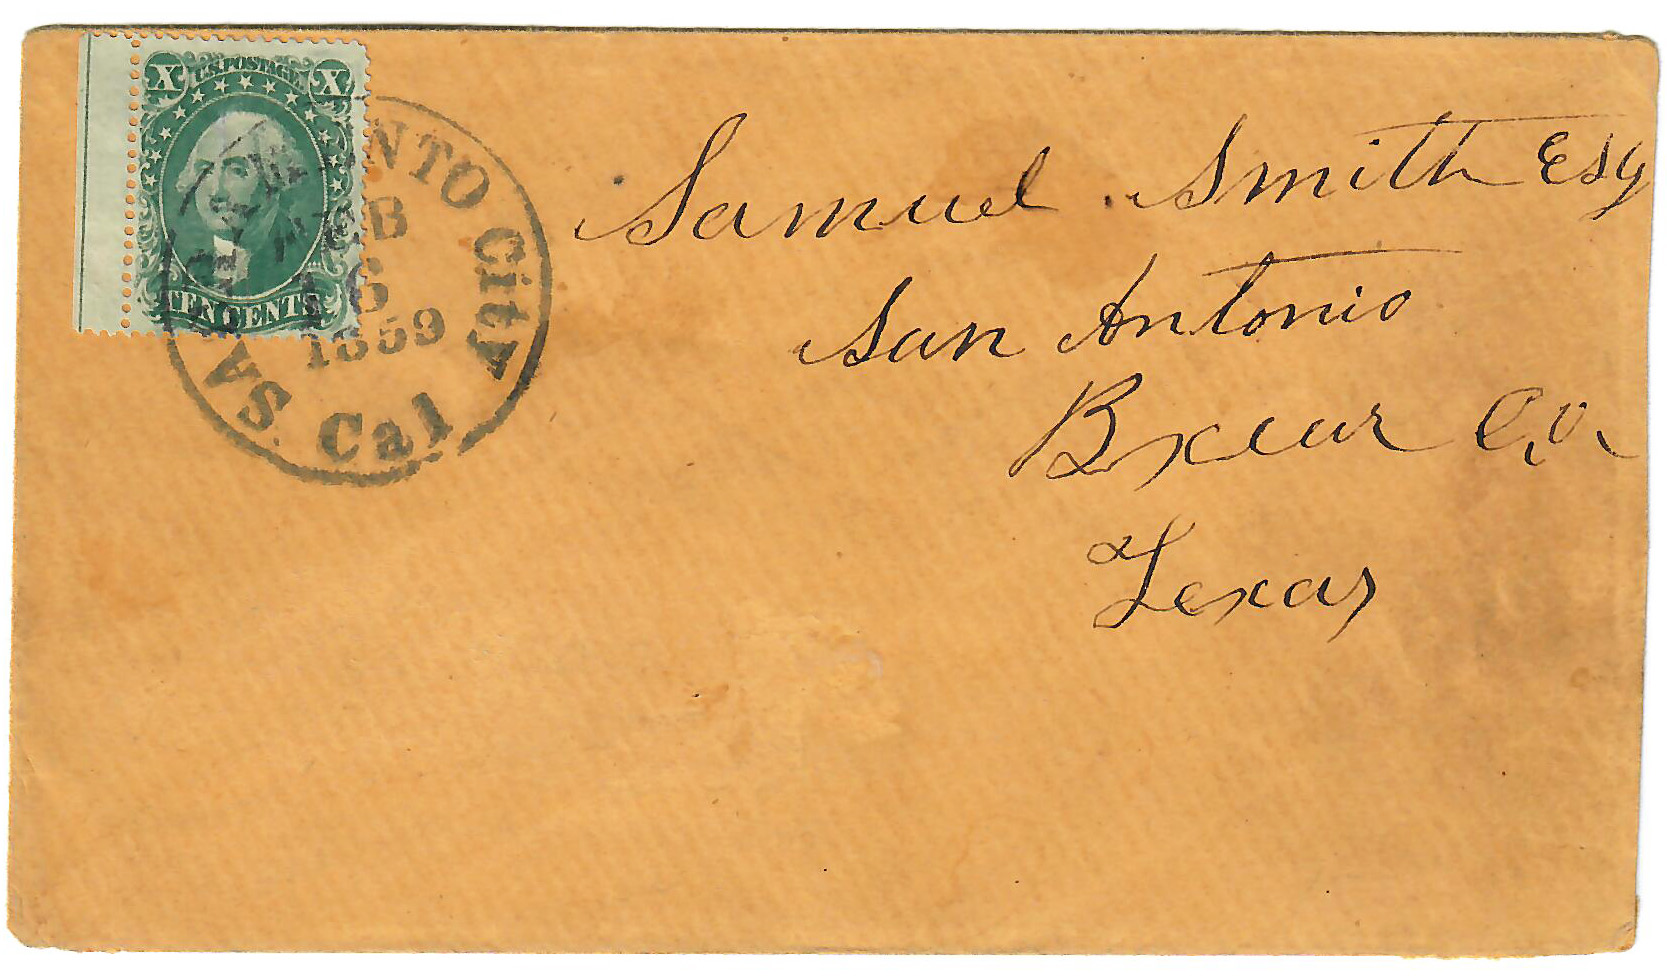 X U.S.POSTAGE X
TEN CENTS
SACRAMENTO City
FEB
16
1859
Cal.
Samuel Smith Esq
San Antonio
Bexar Co.
Texas